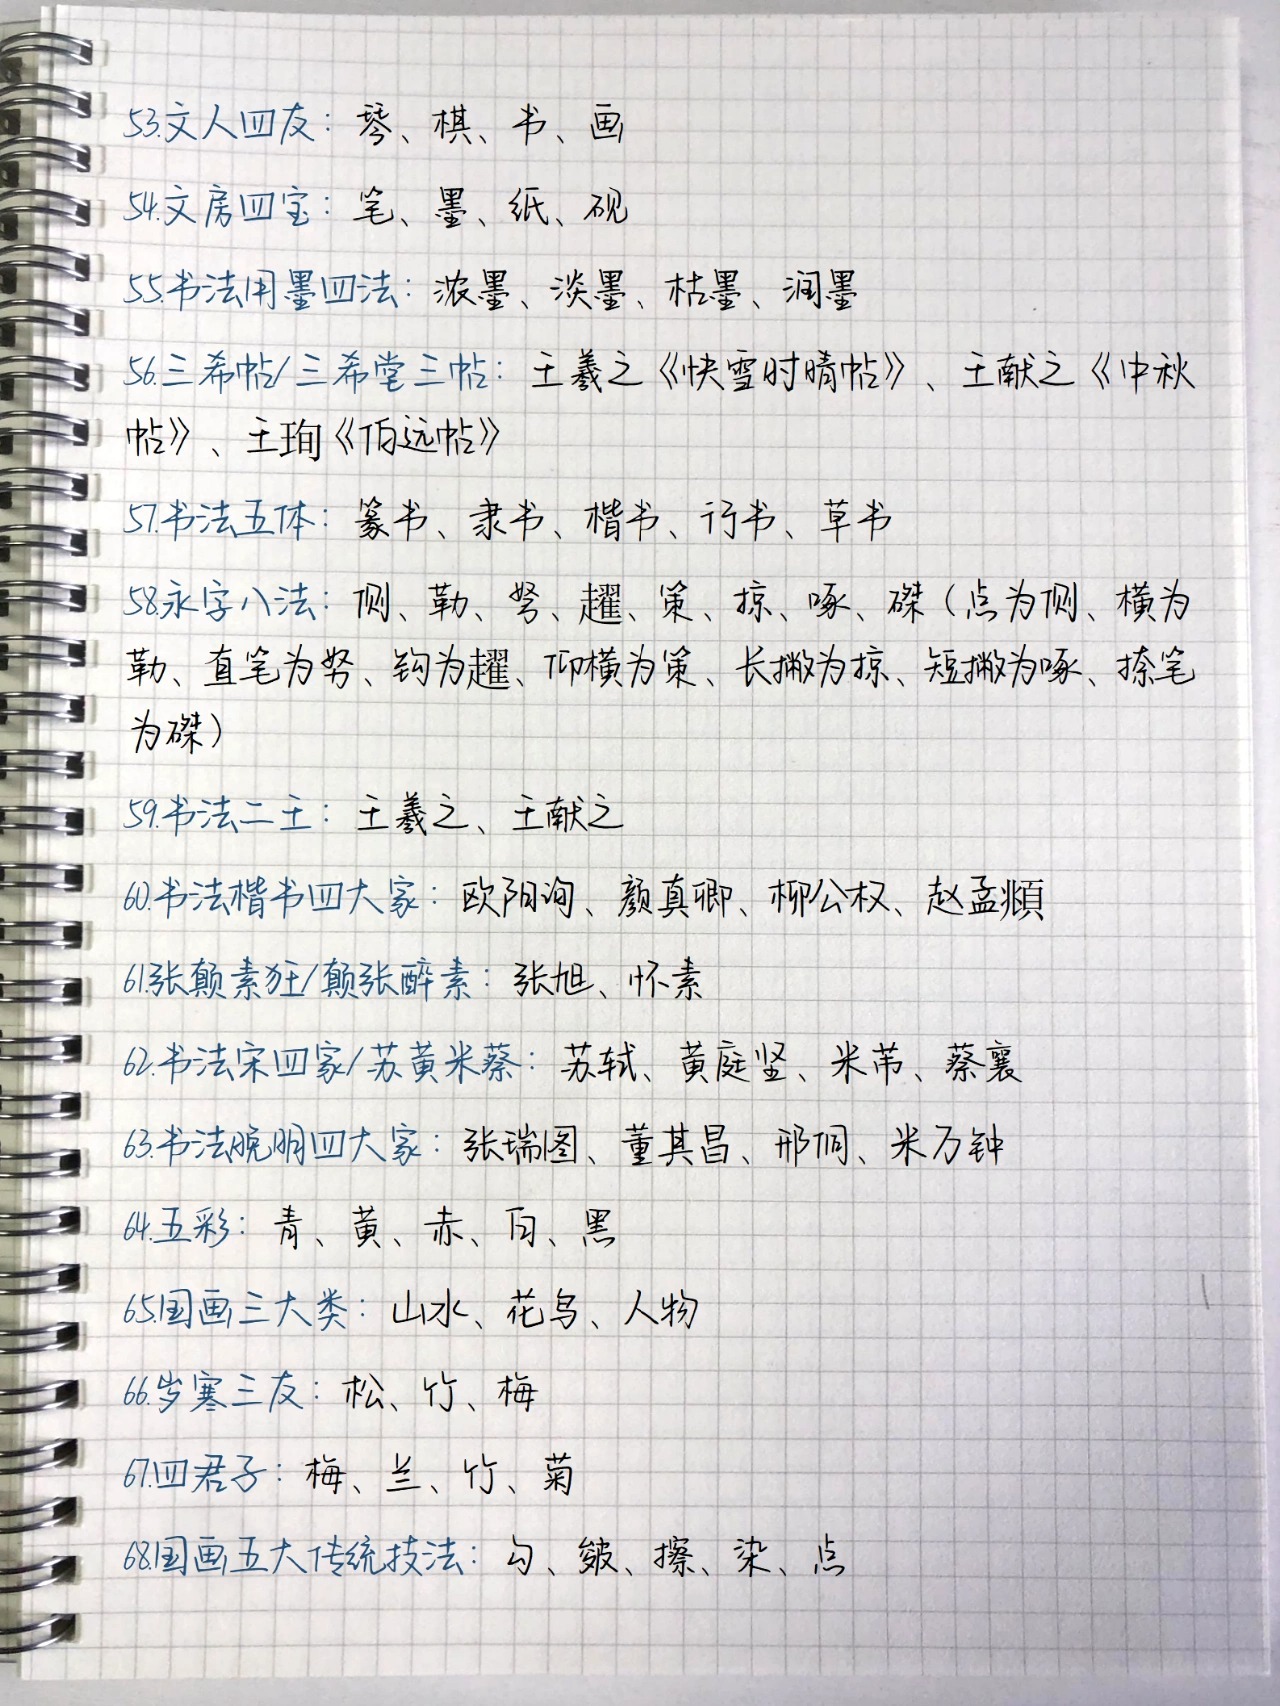 53.文人四友：琴、棋、书、画
54.文房四宝：笔、墨、纸、砚
55.书法用墨四法：浓墨、淡墨、枯墨、润墨
56.三希帖/三希堂三帖：王羲之《快雪时晴帖》、王献之《中秋
帖》、王珣《伯远帖》
57.书法五体：篆书、隶书、楷书、行书、草书
58.永字八法：侧、勒、努、趯、策、掠、啄、磔（点为侧、横为
勒、直笔为努、钩为趯、仰横为策、长撇为掠、短撇为啄、捺笔
为磔）
59.书法二王：王羲之、王献之
60.书法楷书四大家：欧阳询、颜真卿、柳公权、赵孟頫
61.张颠素狂/颠张醉素：张旭、怀素
62.书法宋四家/苏黄米蔡：苏轼、黄庭坚、米芾、蔡襄
63.书法晚明四大家：张瑞图、董其昌、邢侗、米万钟
64.五彩：青、黄、赤、白、黑
65.国画三大类：山水、花鸟、人物
66.岁寒三友：松、竹、梅
67.四君子：梅、兰、竹、菊
68.国画五大传统技法：勾、皴、擦、染、点